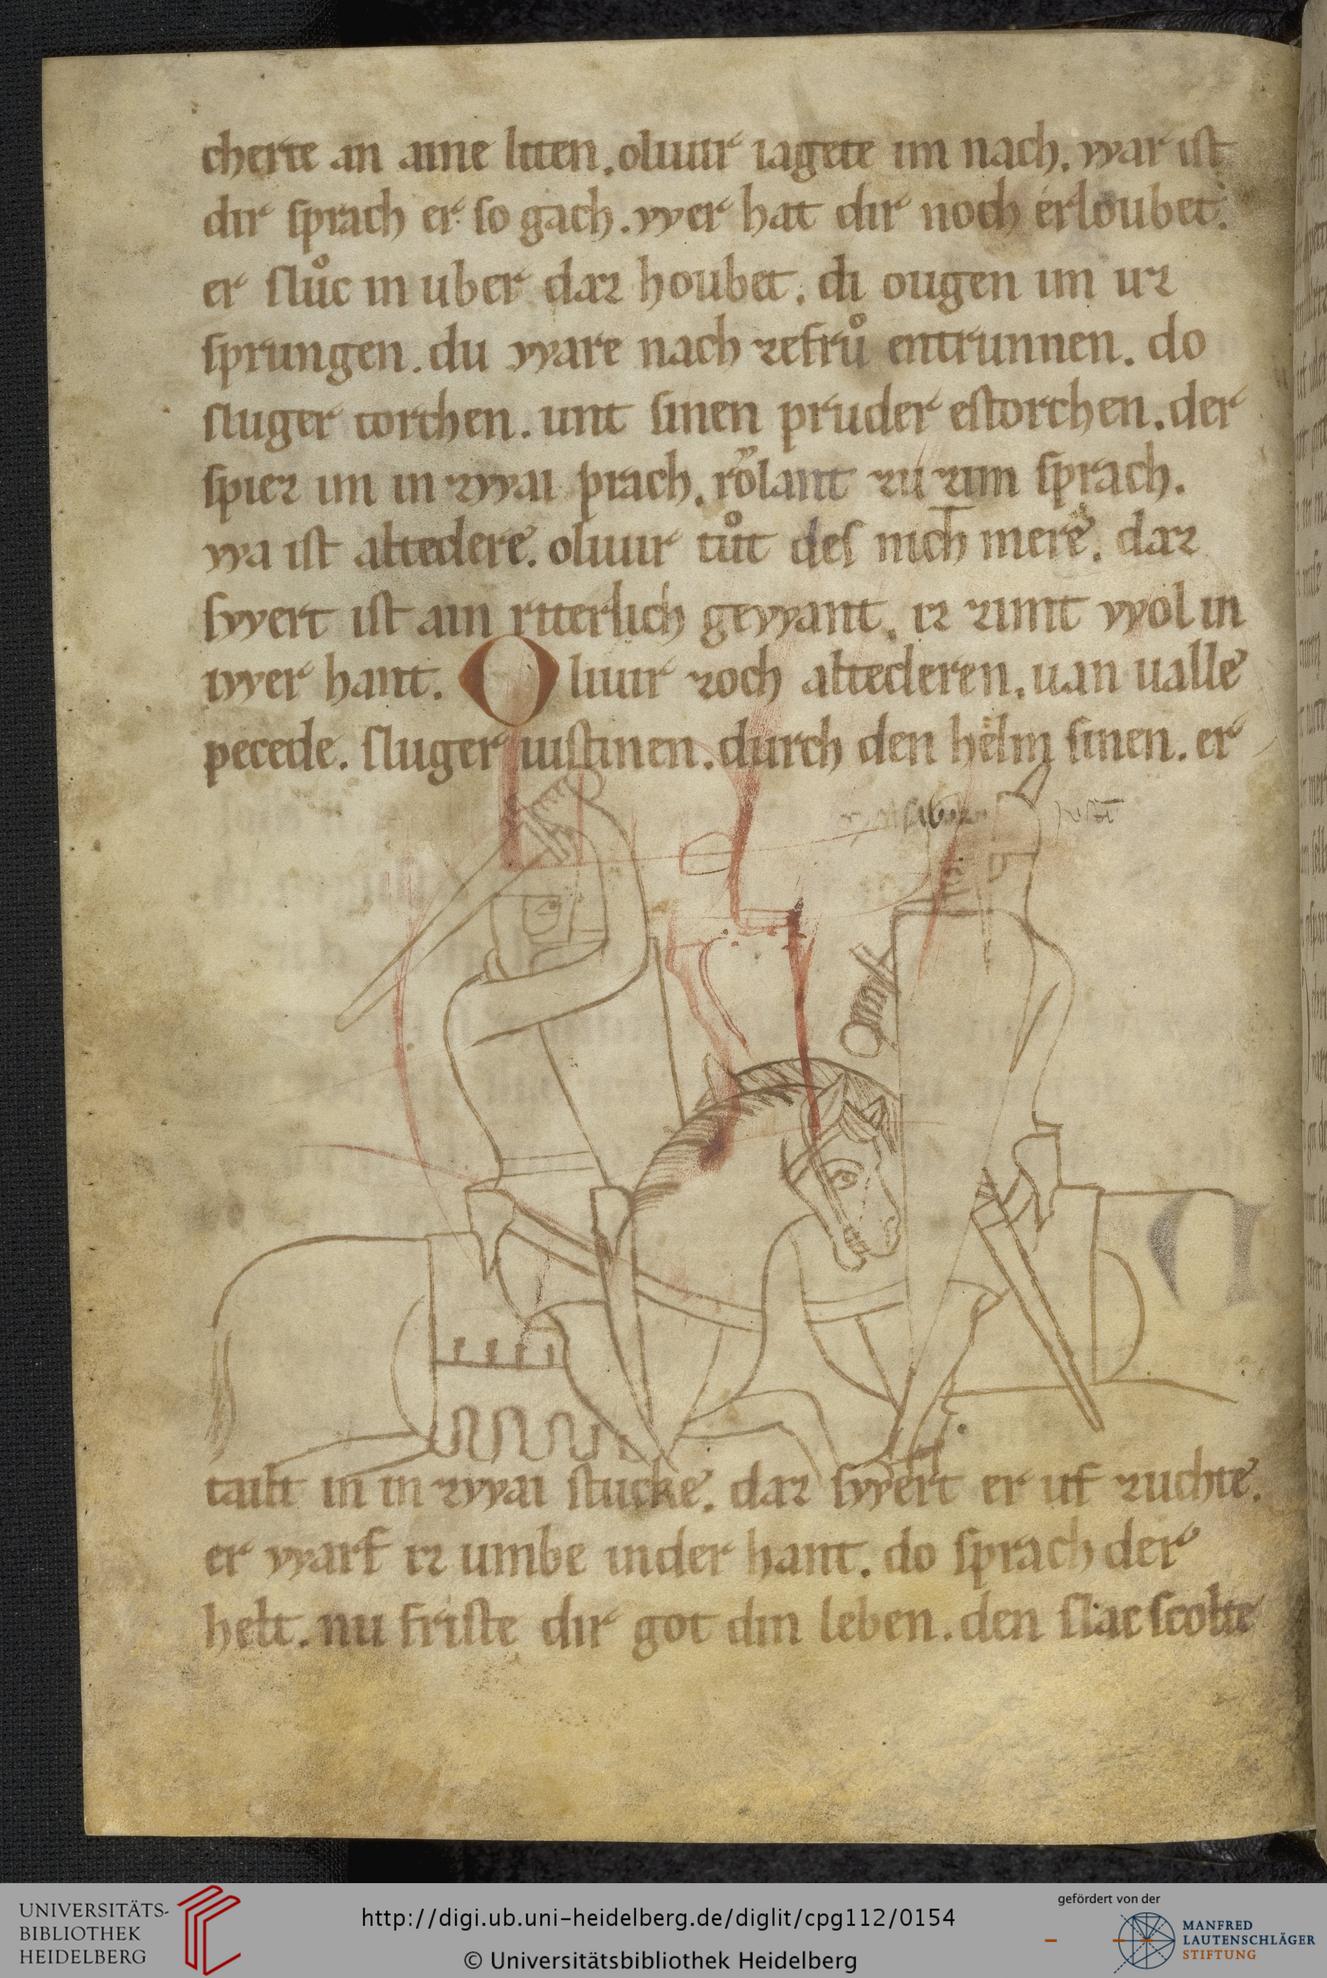 cherte an aine liten. oliuir iagete im nach. war ist
dir sprach er so gach. wer hat dir noch erloubet.
er slůc in uber daz houbet. di ougen im uz
sprungen. du ware nach zefrů entrunnen. do
sluger torchen. unt sinen pruder estorchen. der
spiez im in zwai prach. rolant zu zim sprach.
wa ist altedere. oliuir tůt des nich mere. daz
swert ist ain riterlich gewant. iz zimt wol in
iwer hant. Oliuir zoch altederen. uan ualle
pecede. sluger iustinen. durch den helm sinen. er
tailt in in zwai stucke. daz swert er uf zuchte.
er warf iz umbe inder hant. do sprach der
helt. nu friste dir got din leben. den slac scolte
UNIVERSITÄTS-
BIBLIOTHEK
HEIDELBERG
http://digi.ub.uni-heidelberg.de/diglit/cpg112/0154
© Universitätsbibliothek Heidelberg
gefördert von der
MANFRED
LAUTENSCHLÄGER
STIFTUNG